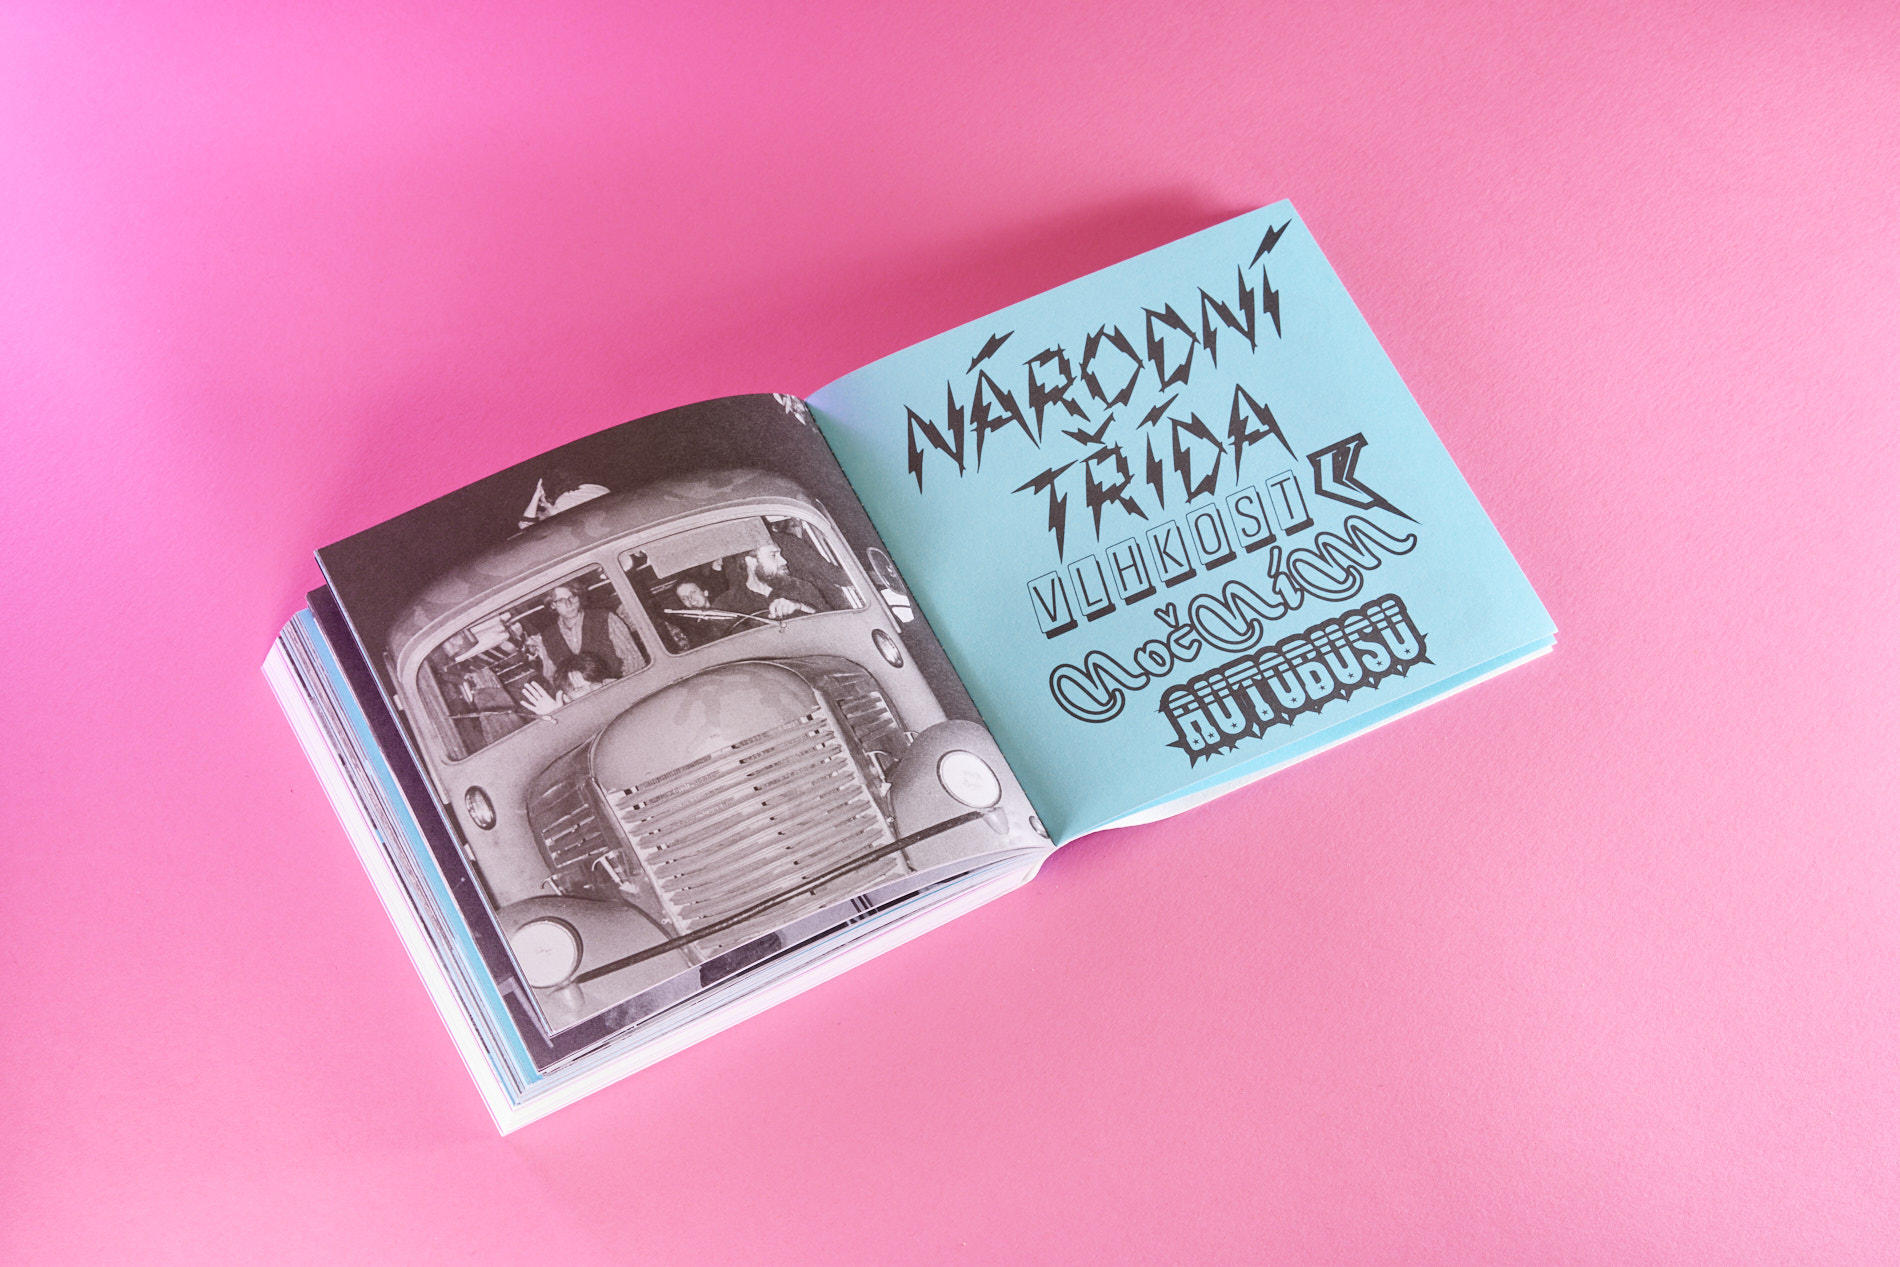 NÁRODNÍ
TŘÍDA
VLHKOST K
NočNíM
AUTOBUSU